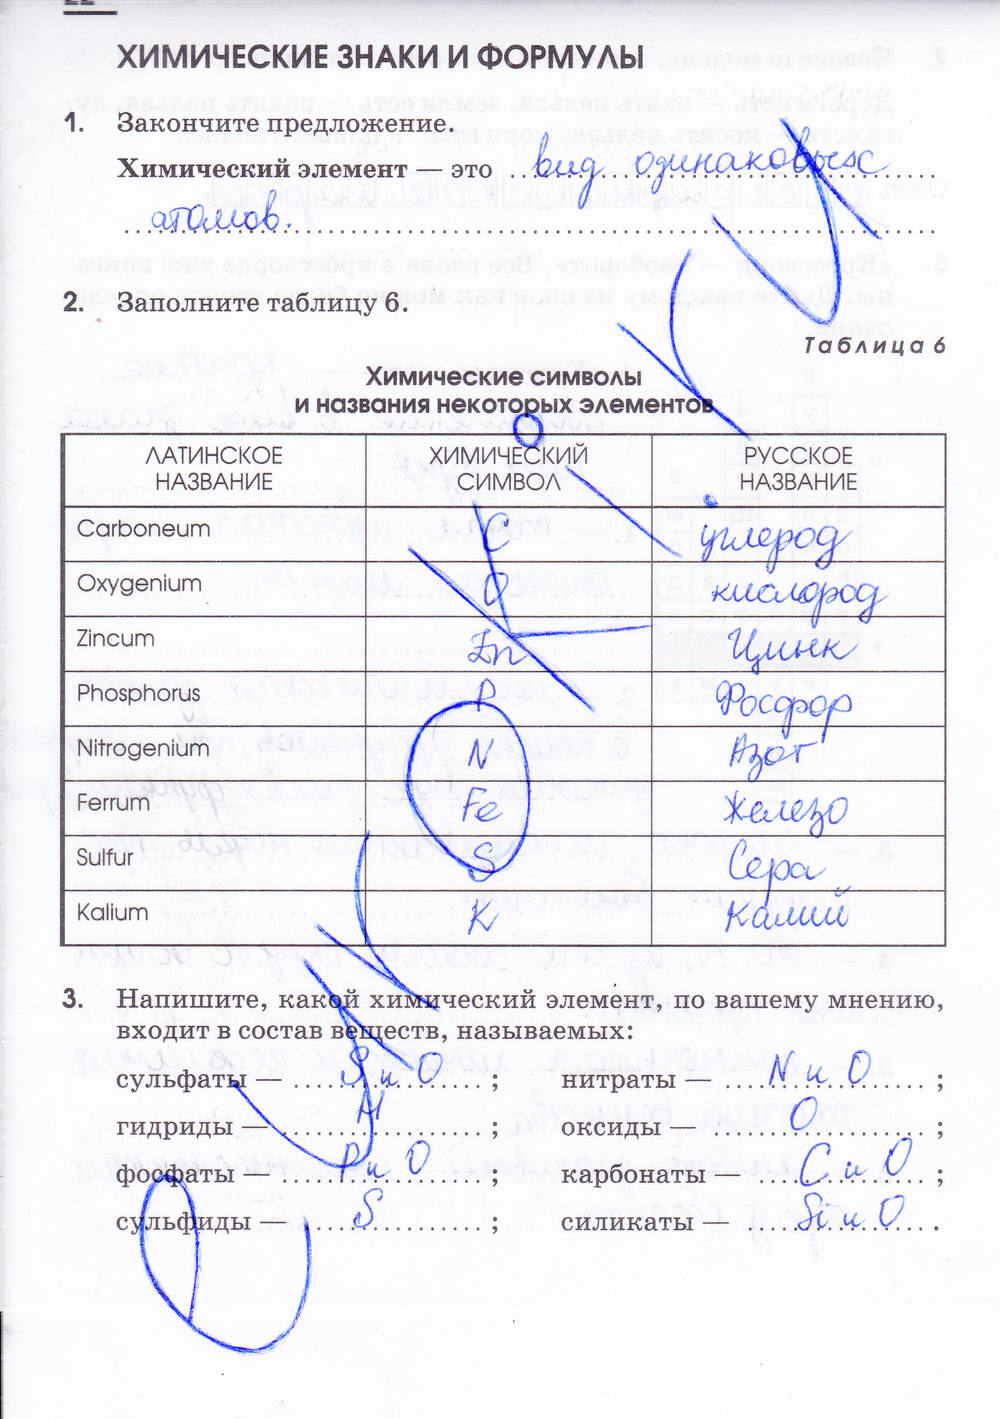 22
ХИМИЧЕСКИЕ ЗНАКИ И ФОРМУЛЫ
1. Закончите предложение.
Химический элемент — это вид одинаковых
атомов.
2. Заполните таблицу 6.
Таблица 6
Химические символы
и названия некоторых элементов
ЛАТИНСКОЕ НАЗВАНИЕ ХИМИЧЕСКИЙ СИМВОЛ РУССКОЕ НАЗВАНИЕ
Carboneum C углерод
Oxygenium O кислород
Zincum Zn Цинк
Phosphorus P Фосфор
Nitrogenium N Азот
Ferrum Fe Железо
Sulfur S Сера
Kalium K Калий
3. Напишите, какой химический элемент, по вашему мнению,
входит в состав веществ, называемых:
сульфаты — S и O ; нитраты — N и O ;
гидриды — H ; оксиды — O ;
фосфаты — P и O ; карбонаты — C и O ;
сульфиды — S ; силикаты — Si и O .